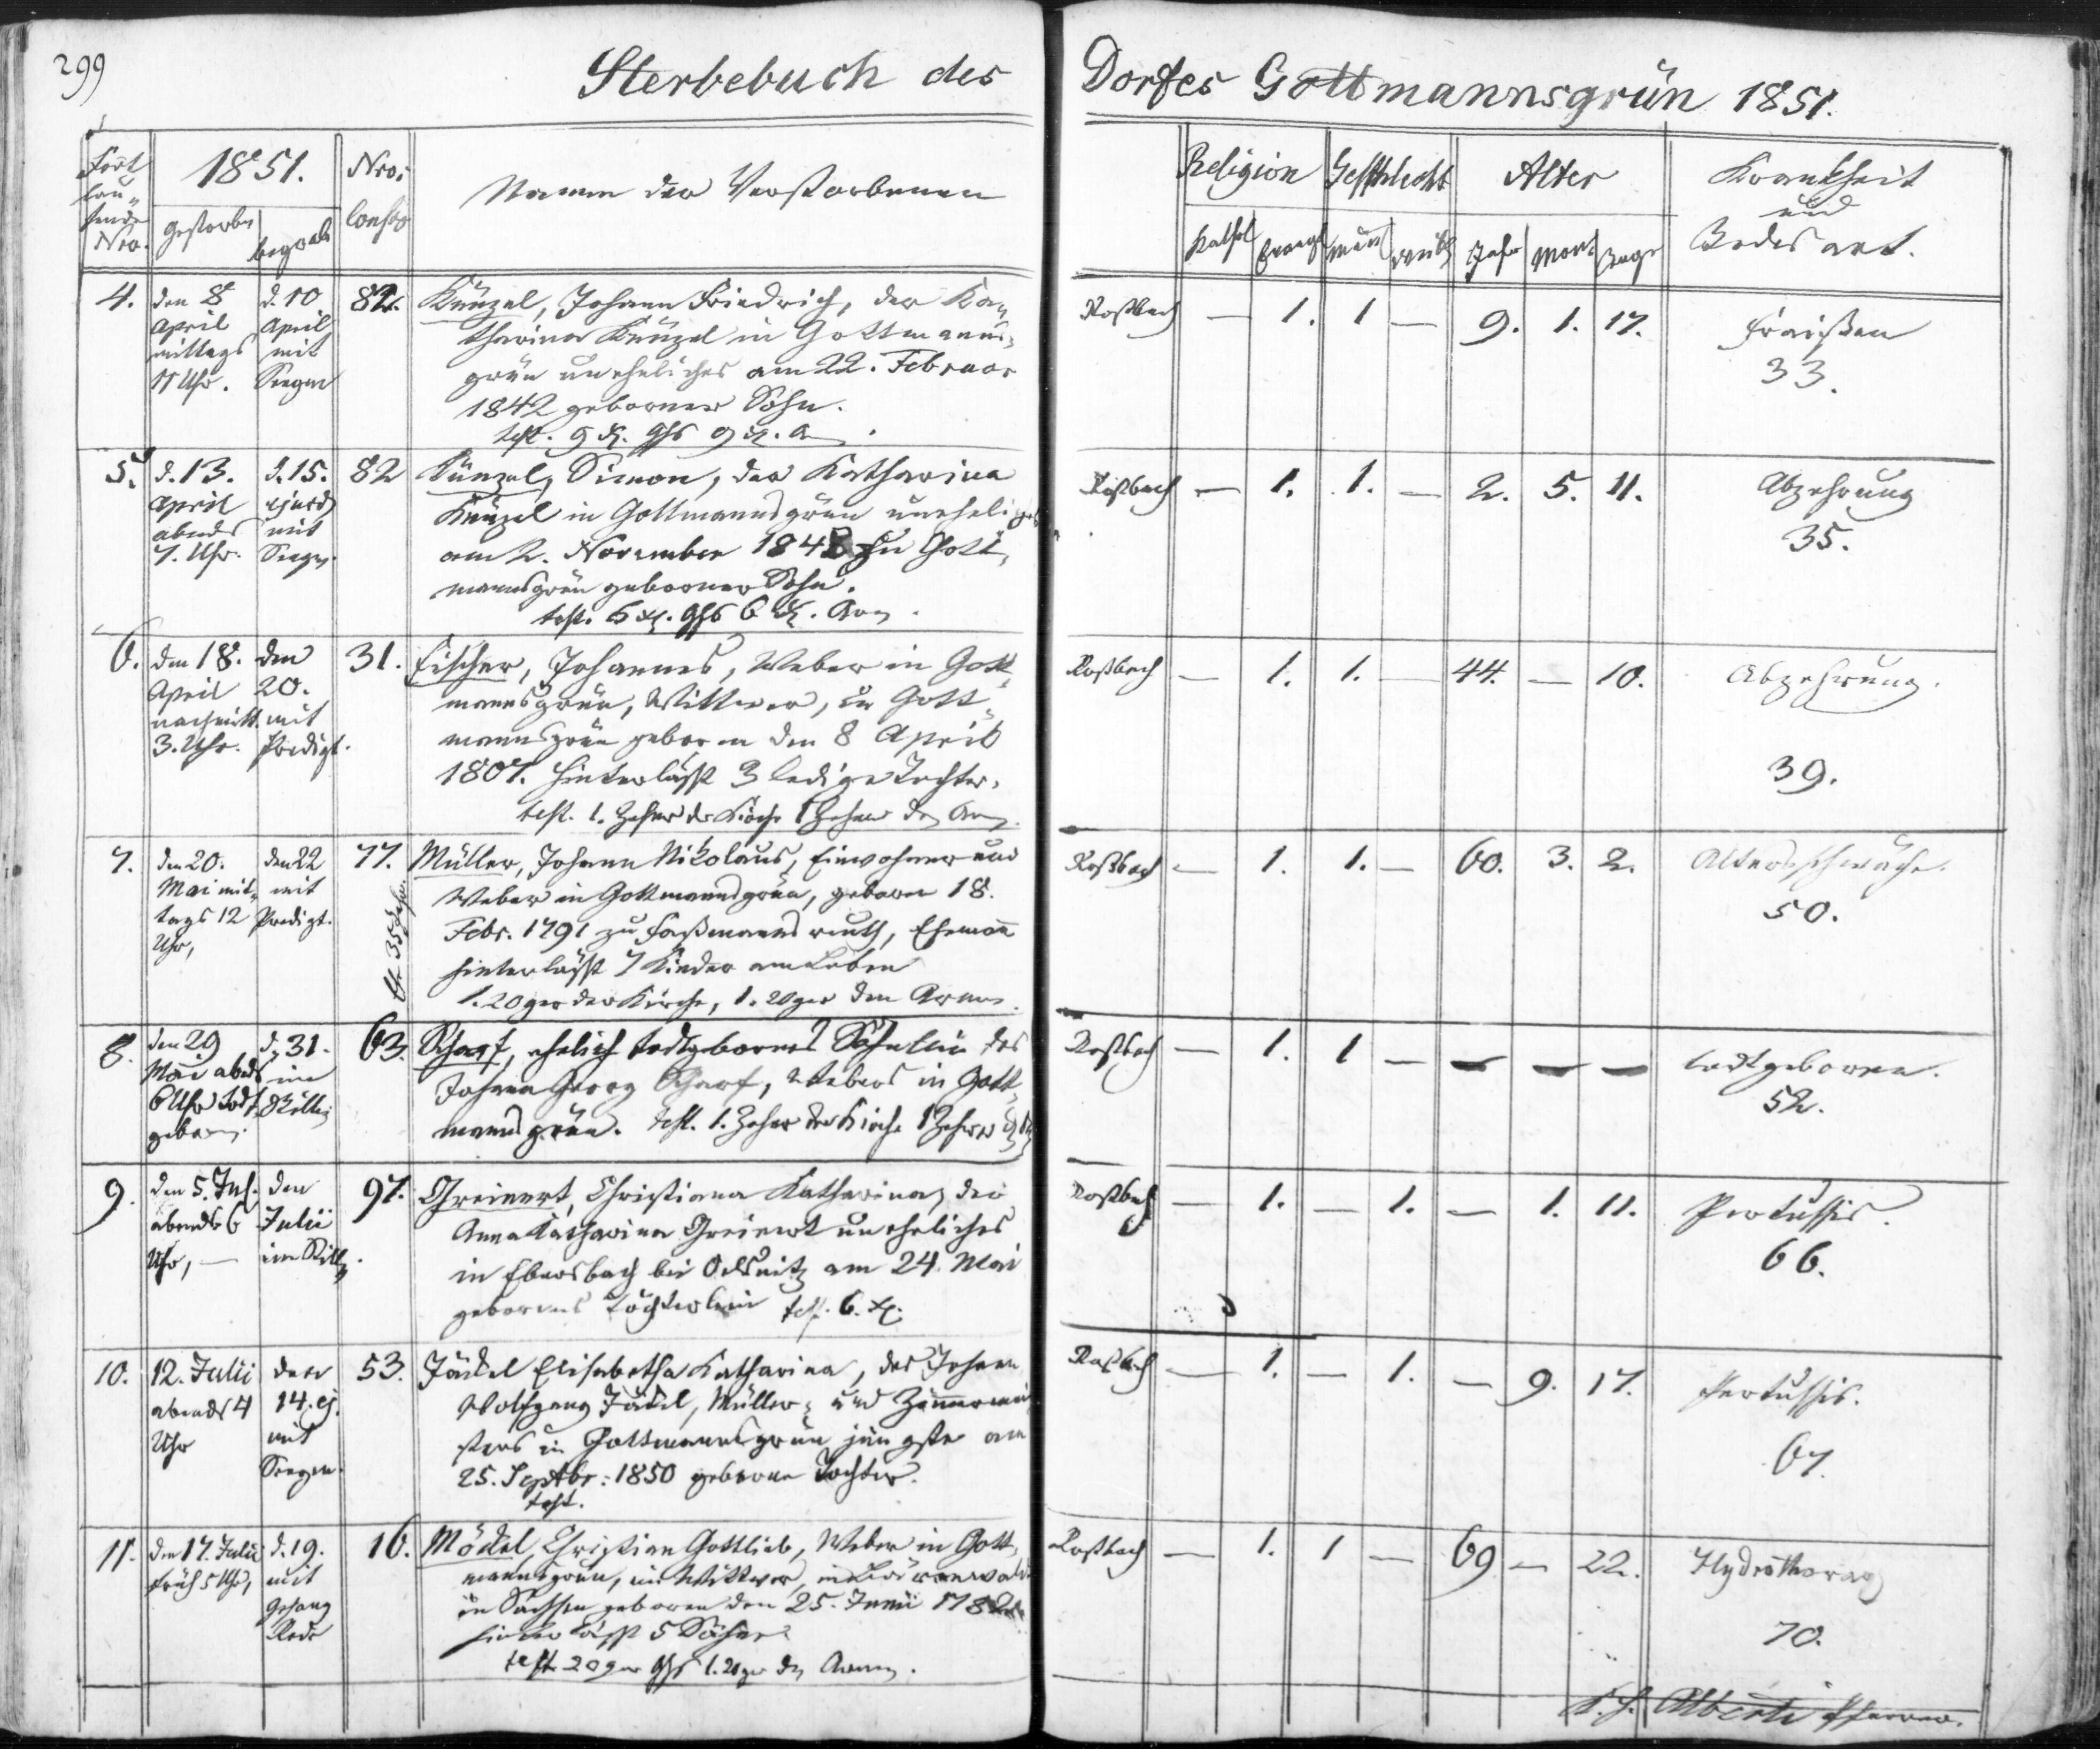 299
Sterbebuch des Dorfes Gottmannsgrün 1851.
Fort
lau-
fende
Nro.
1851.
gestorben
begrab
Nro.
Namen der Verstorbenen
Religion
Kathol
Evangl
Geschlecht
män
weibl
Alter
Jahr
Mon
Tage
Krankheit
und
Todesart.
4.
den 8
April
mittags
11 Uhr.
d. 10
April
mit
Seegen
82.
Künzel, Johann Friedrich, der Ka-
tharina Künzel in Gottmanns-
grün uneheliches am 22. Februar
1842 geborner Sohn.
Roßbach — 1. 1 — 9. 1. 17.
Fraißen
33.
5.
d. 13.
April
abends
7. Uhr.
d. 15.
ejusd
mit
Seegen.
82
Künzel, Simon, der Katharina
Künzel in Gottmannsgrün uneheliches
am 2. November 1848 zu Gott-
mannsgrün geborner Sohn.
Roßbach — 1. 1. — 2. 5. 11.
Abzehrung
35.
6.
den 18.
April
nachmitt.
3. Uhr.
den
20.
mit
Predigt.
31.
Fischer, Johannes, Weber in Gott-
mannsgrün, Wittwer, zu Gott-
mannsgrün geboren den 8 April
1807. hinterläßt 3 ledige Töchter.
test. 1. Zehner der Kirche 1 Zehner den Arm
Roßbach — 1. 1. — 44. — 10.
Abzehrung.
39.
7.
den 20.
Mai mit-
tags 12
Uhr,
den 22
mit
Predigt.
77.
Müller, Johann Nikolaus, Einwohner und
Weber in Gottmannsgrün, geboren 18.
Febr. 1791 zu Faßmannsreuth, Ehemann
hinterläßt 7 Kinder am Leben
1. 20ger der Kirche, 1. 20ger den Armen
Roßbach — 1. 1. — 60. 3. 2.
Altersschwäche.
50.
8.
den 29
Mai abends
6 Uhr todt
geboren.
d. 31.
im
Stillen
63.
Scharf, ehelich todtgebornes Söhnlein des
Johann Georg Scharf, Webers in Gott-
mannsgrün. test. 1. Zehner der Kirche 1 Zehner
Roßbach — 1. 1 — — — —
todtgeboren.
52.
9.
den 5. Jul.
abends 6
Uhr, —
den
Julii
im Stillen
97.
Greinert, Christiana Katharina, der
Anna Katharina Greinert uneheliches
in Ebersbach bei Oelsnitz am 24. Mai
geborenes Töchterlein test. 6. x.
Roßbach — 1. — 1. — 1. 11.
Pertussis.
66.
10.
12. Julii
abends 4
Uhr
den
14. ej.
mit
Seegen.
53.
Jäckel Elisabetha Katharina, des Johann
Wolfgang Jäckel, Müller- und Zimmermei-
sters in Gottmannsgrün jüngste am
25. Septbr: 1850 geborne Tochter.
test.
Roßbach — 1. — 1. — 9. 17.
Pertussis.
67.
11.
den 17. Julii
früh 5 Uhr,
d. 19.
mit
Gesang
Rede
16.
Möckel, Christian Gottlieb, Weber in Gott-
mannsgrün, ein Wittwer, in
in Sachsen geboren den 25. Junii 1782
hinterläßt 5 Söhne
test. 20ger 1. 20ger den Armen.
Roßbach — 1. 1 — 69 — 22.
Hydrothorax
70.
Alberti Pfarrer.